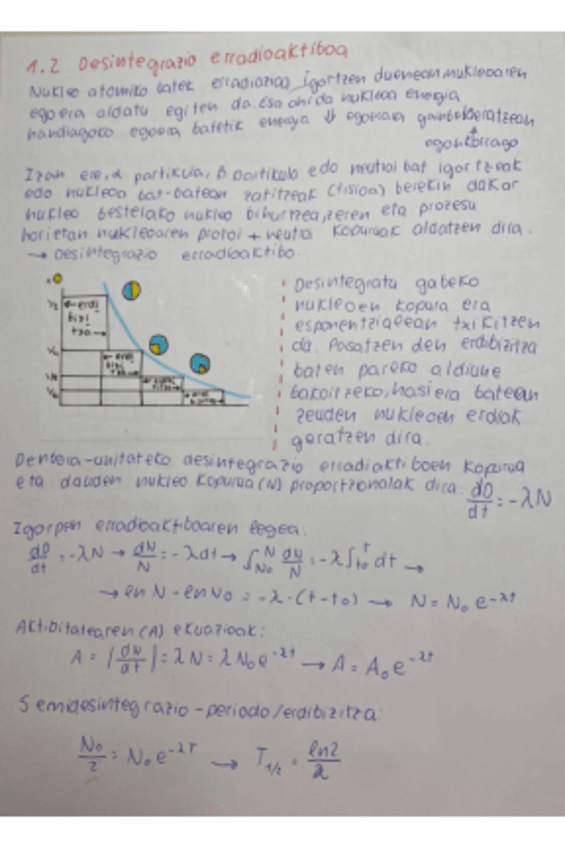 1.2 Desintegrazio erradioaktiboa
Nukleo atomiko batek erradiazioa igortzen duenean nukleoaren
egoera aldatu egiten da. Esa ohi da nukleoa energia
handiagoko egoera batetik energia ↓ egoerara
egonkorrago
Izan ere, α partikula, β partikula edo neutroi bat igortzeak
edo nukleoa bat-batean zatitzeak (fisioa) berekin dakar
nukleo bestelako nukleo bihurtzea, zeren eta prozesu
horietan nukleoaren protoi + neutroi kopuruak aldatzen dira.
→ Desintegrazio erradioaktibo.
1/2 erdi
bizi
tza
1/4 erdi
bizi
tza
1/8
Desintegratu gabeko
nukleoen kopurua era
esponentzialean txikitzen
da. Pasatzen den erdibizitza
baten pareko aldiune
bakoitzeko, hasiera batean
zeuden nukleoen erdiak
geratzen dira.
Denbora-unitateko desintegrazio erradiaktiboen kopurua
eta dauden nukleo kopurua (N) proportzionalak dira. dD/dt = -λN
Igorpen erradioaktiboaren legea:
dD/dt = -λN → dN/N = -λdt → ∫N₀ᴺ dN/N = -λ∫t₀ᵗ dt →
→ ln N - ln N₀ = -λ·(t-t₀) → N = N₀ e^-λt
Aktibitatearen (A) ekuazioak:
A = |dN/dt| = λN = λN₀e^-λt → A = A₀e^-λt
Semidesintegrazio-periodo/erdibizitza:
N₀/2 = N₀e^-λT → T₁/₂ = ln2/λ